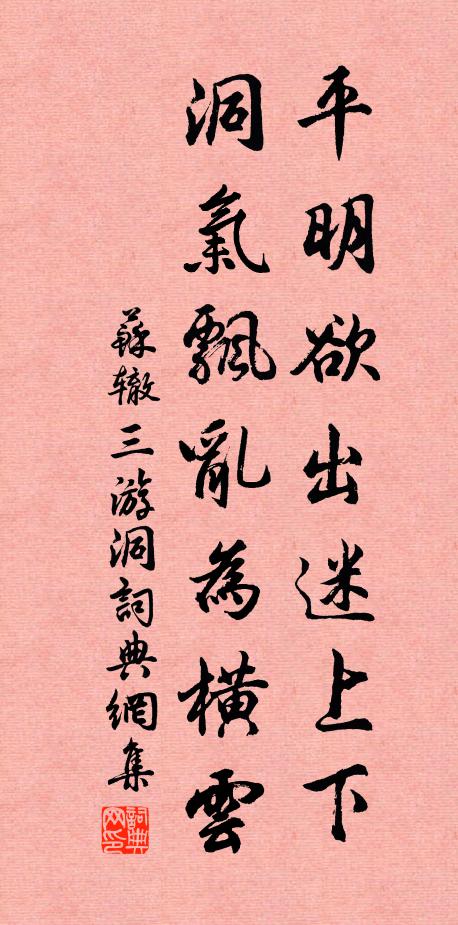 平明欲出迷上下
洞氣飄亂為橫雲
蘇辙三游洞詞典網集
詞典网印